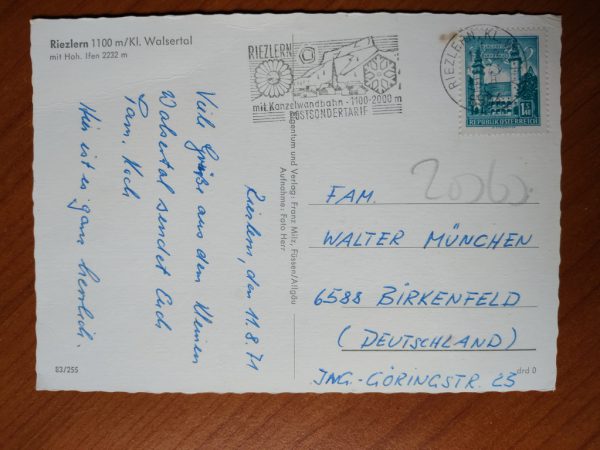 Riezlern 1100 m/Kl. Walsertal
mit Hoh. Ifen 2232 m
RIEZLERN
mit Kanzelwandbahn - 1100-2000 m
POSTSONDERTARIF
RIEZLERN, KL.
REPUBLIK ÖSTERREICH
Riezlern, den 11.8.71
Viele Grüße aus dem kleinen
Walsertal sendet Euch
Fam. Koch
Hier ist es ganz herrlich.
Eigentum und Verlag: Franz Milz, Füssen/Allgäu
Aufnahme: Foto Herr
FAM.
WALTER MÜNCHEN
6588 BIRKENFELD
(DEUTSCHLAND)
JNG.-GÖRINGSTR. 25
83/255
drd 0